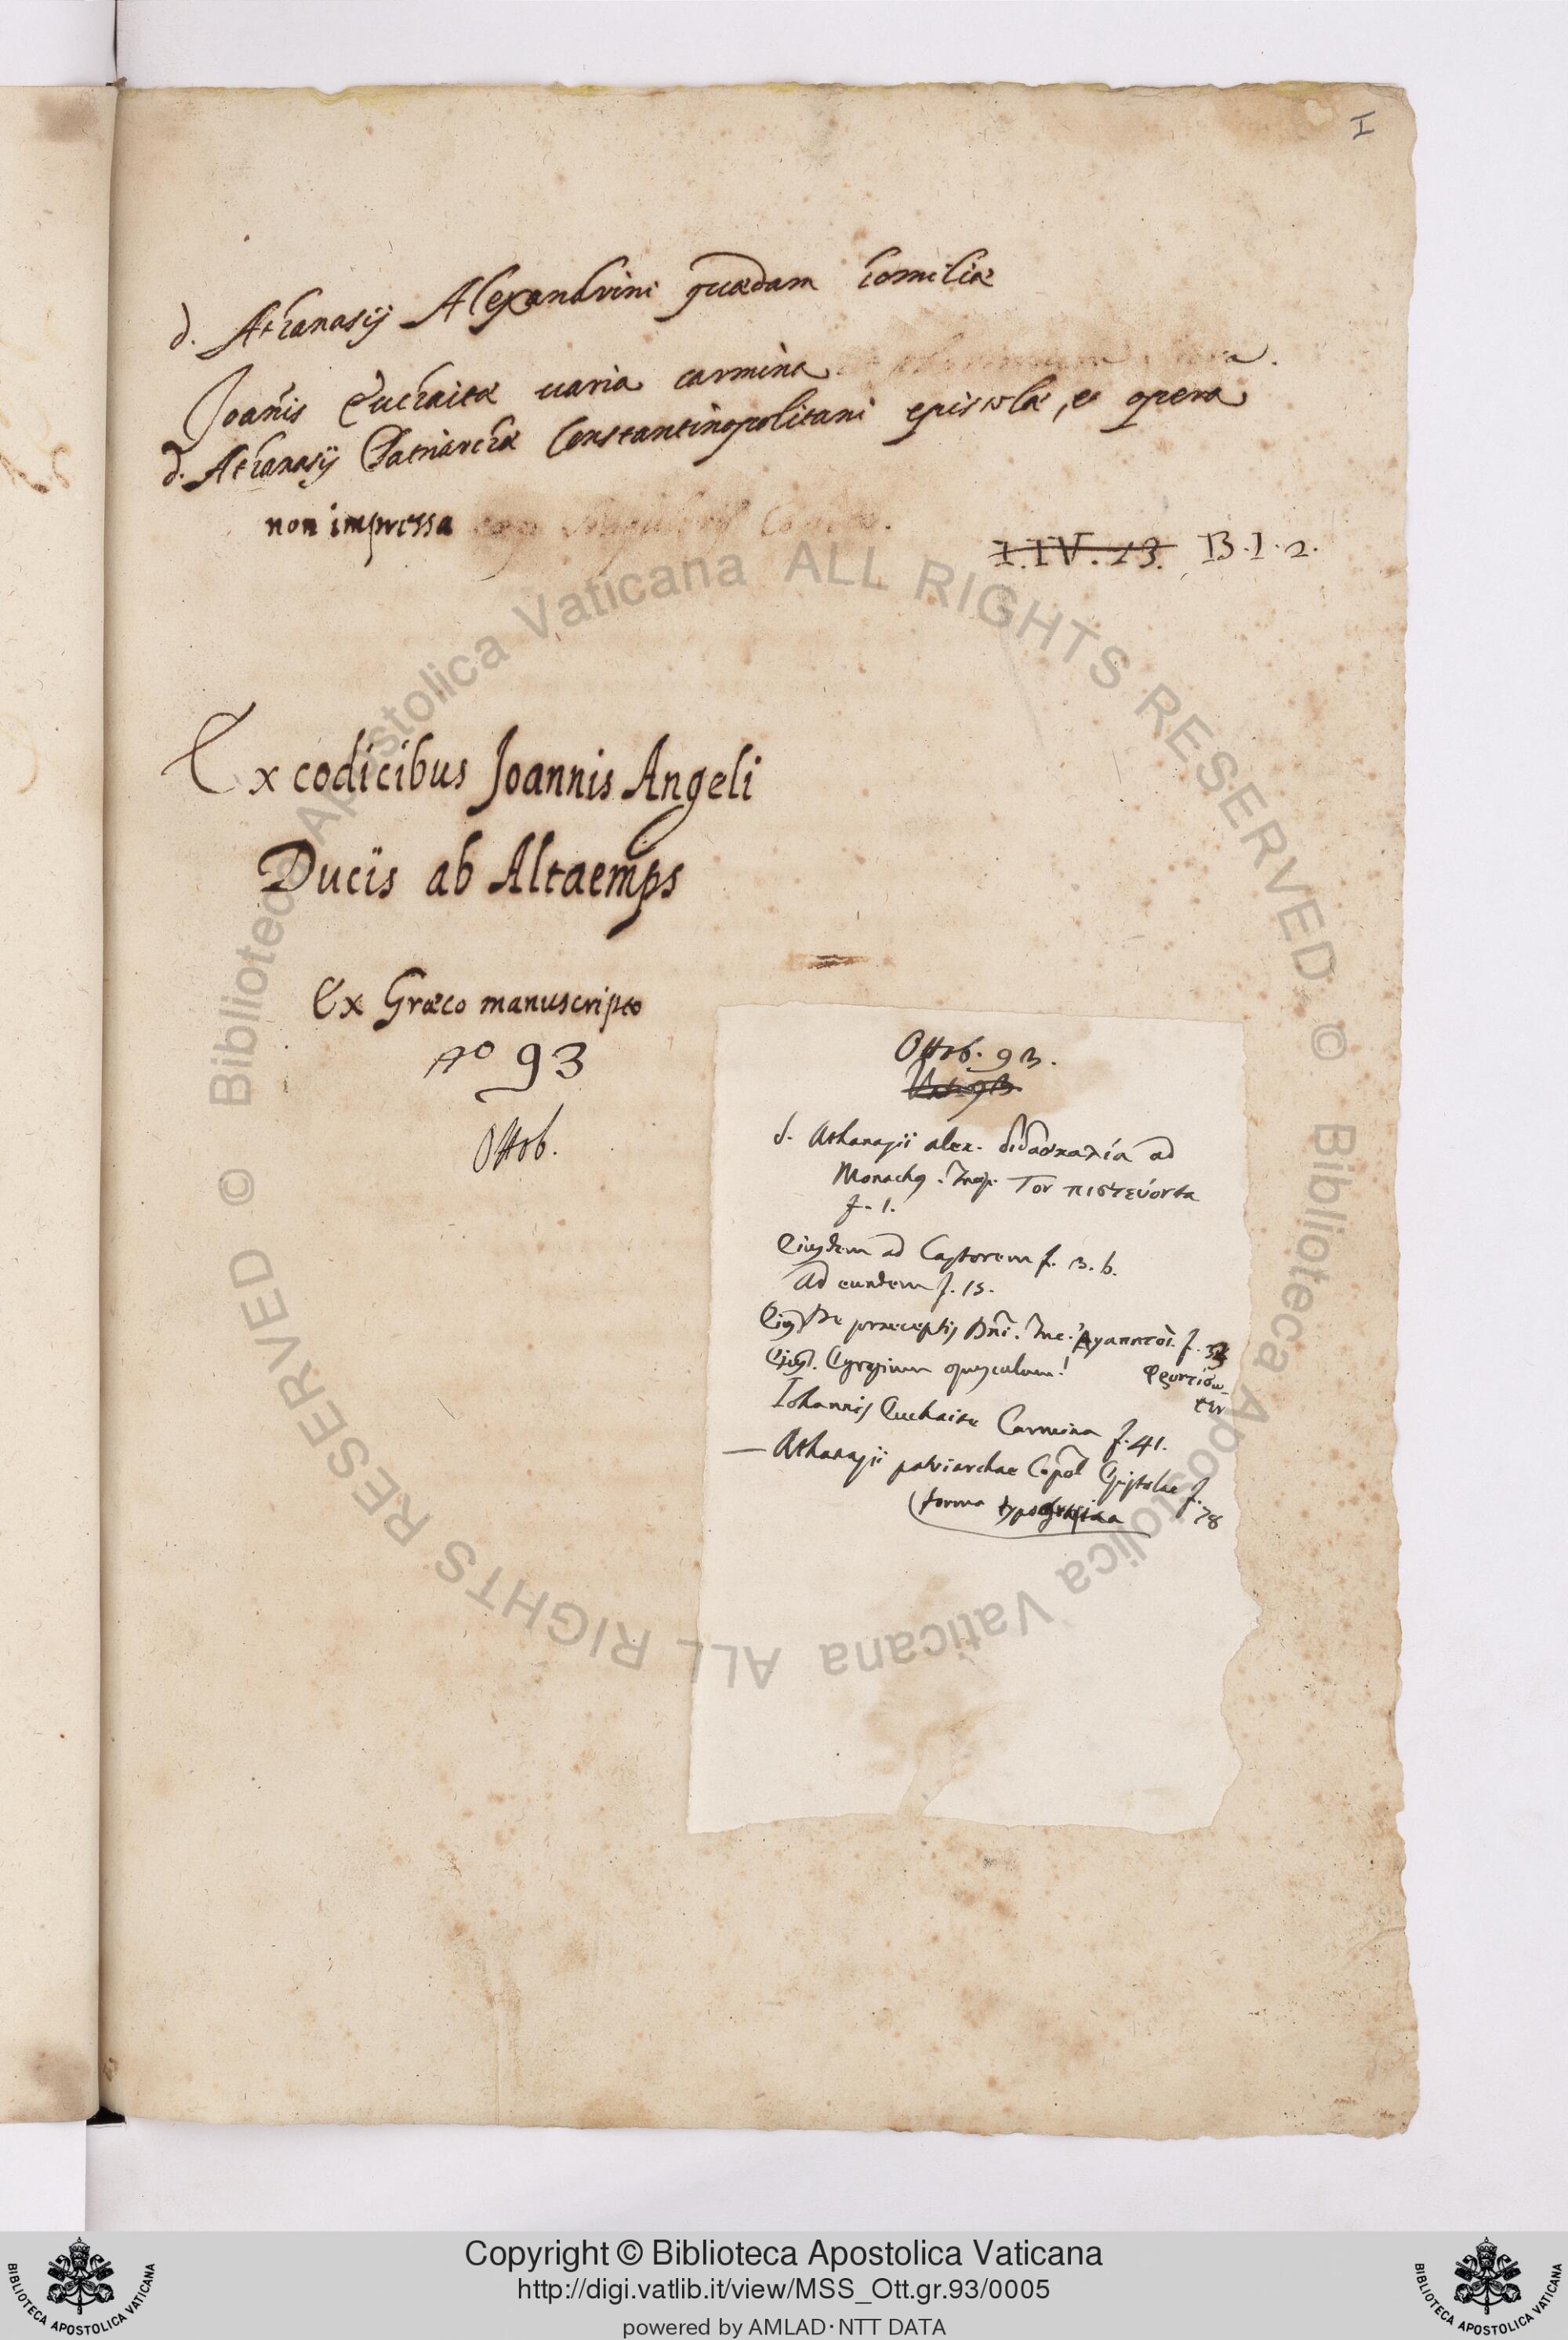 I
d. Athanasij Alexandrini quædam homiliæ
Joañis Euchaitæ uaria carmina
d. Athanasij Patriarchæ Constantinopolitani epistolæ, et opera
non impressa
I.IV.23. B.I.2.
Ex codicibus Joannis Angeli
Ducis ab Altaemps
Ex Græco manuscripto
no 93
Ottob.
Ottob. 93.
d. Athanasii alex. διδασκαλία ad
Monachos. Τον πιστεύοντα
f. 1.
Eiusdem ad Castorem f. 3. b.
Ad eundem f. 15.
Eiusd. De praeceptis Dñi. Inc. Ἀγαπητοὶ f.
Eiusd. Egregium opusculum! Φροντίσω-
μεν
Iohannis Euchaitae Carmina f. 41.
— Athanasii patriarchae Cpol Epistolae f.
78
(forma
© Biblioteca Apostolica Vaticana ALL RIGHTS RESERVED © Biblioteca Apostolica Vaticana ALL RIGHTS RESERVED
Copyright © Biblioteca Apostolica Vaticana
http://digi.vatlib.it/view/MSS_Ott.gr.93/0005
powered by AMLAD·NTT DATA
BIBLIOTECA APOSTOLICA VATICANA
BIBLIOTECA APOSTOLICA VATICANA